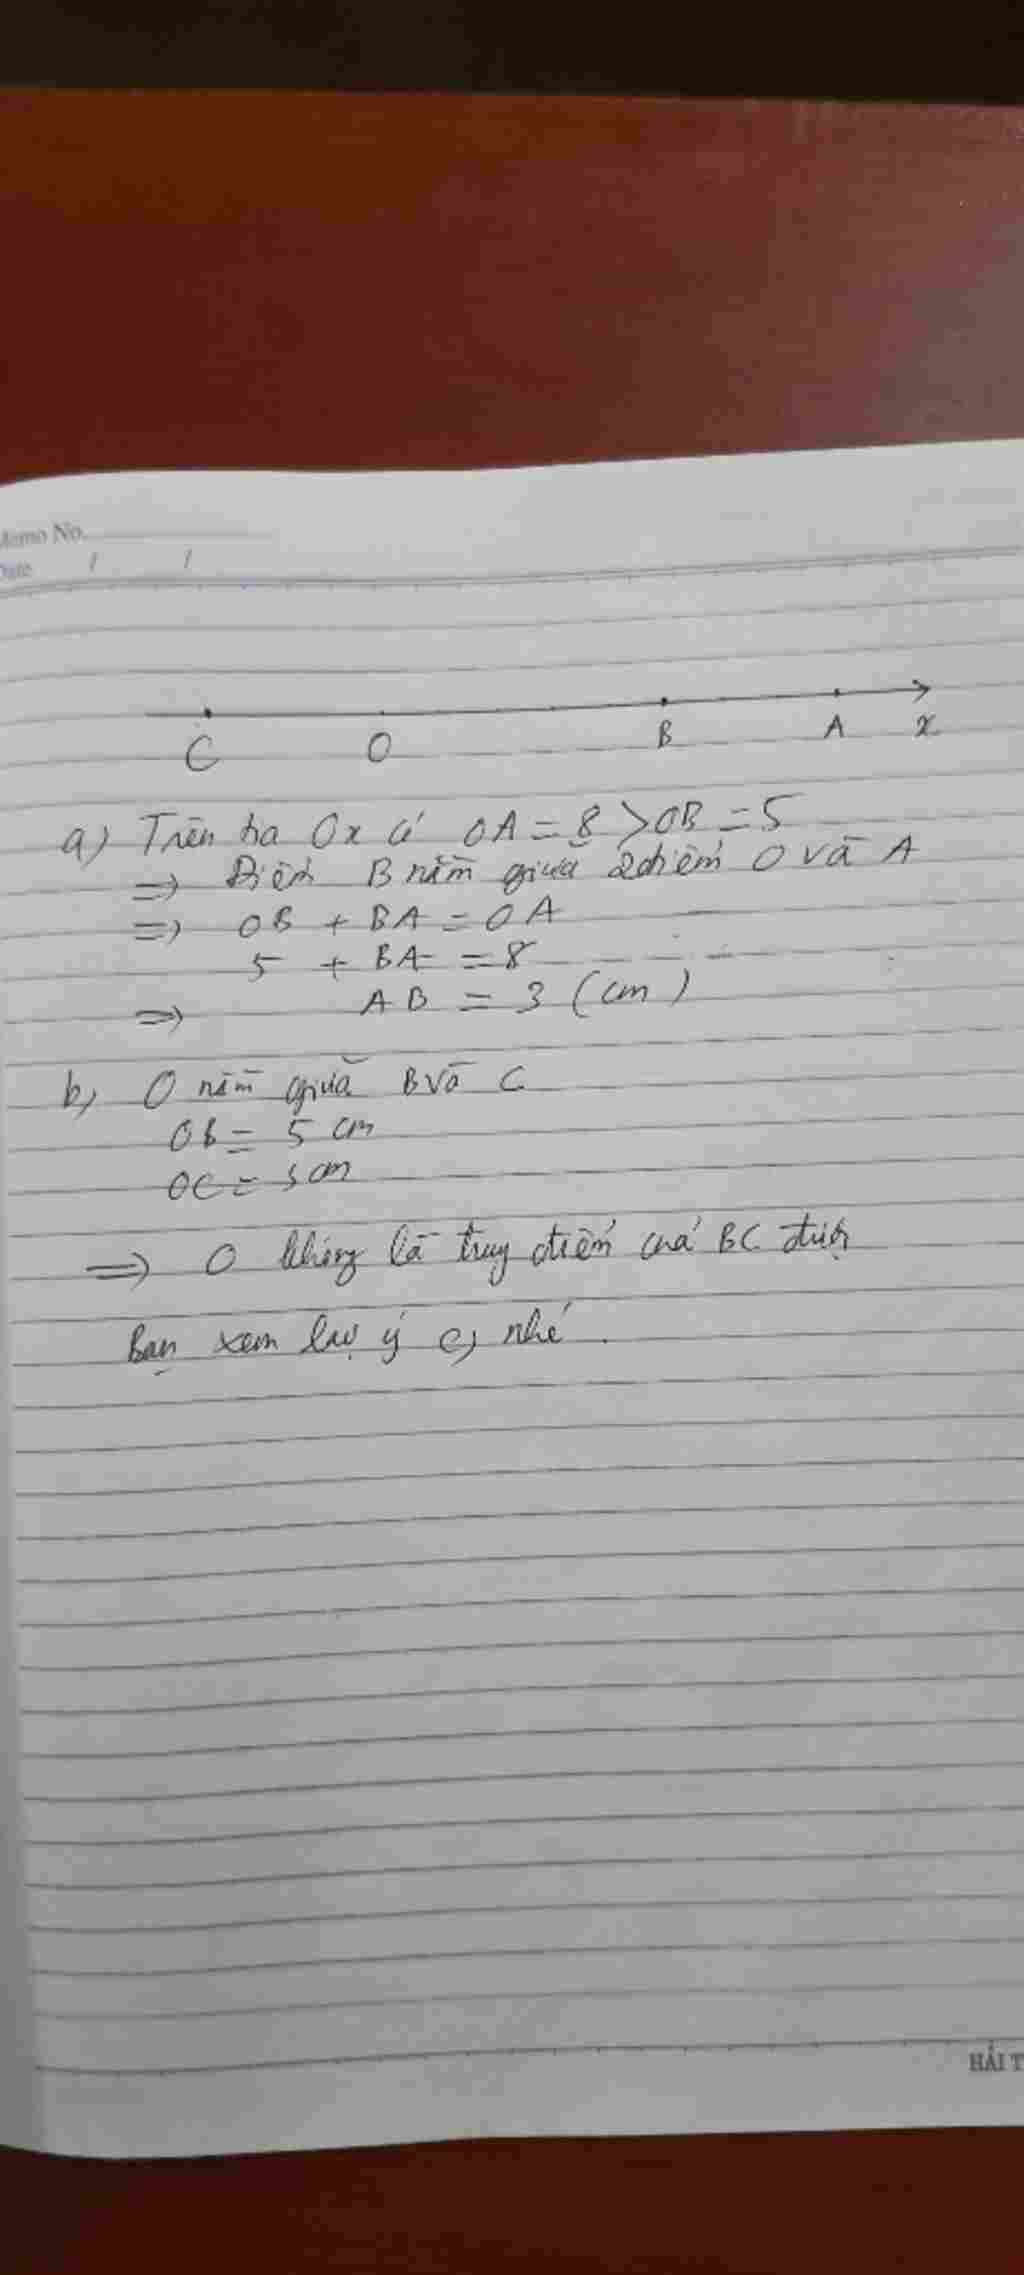 Memo No.
Date / /
C O B A x
a) Trên tia Ox có OA = 8 > OB = 5
=> Điểm B nằm giữa 2 điểm O và A
=> OB + BA = OA
5 + BA = 8
=> AB = 3 (cm)
b) O nằm giữa B và C
OB = 5 cm
OC = 3 cm
=> O không là trung điểm của BC được
Bạn xem lại ý c) nhé.
HẢI T